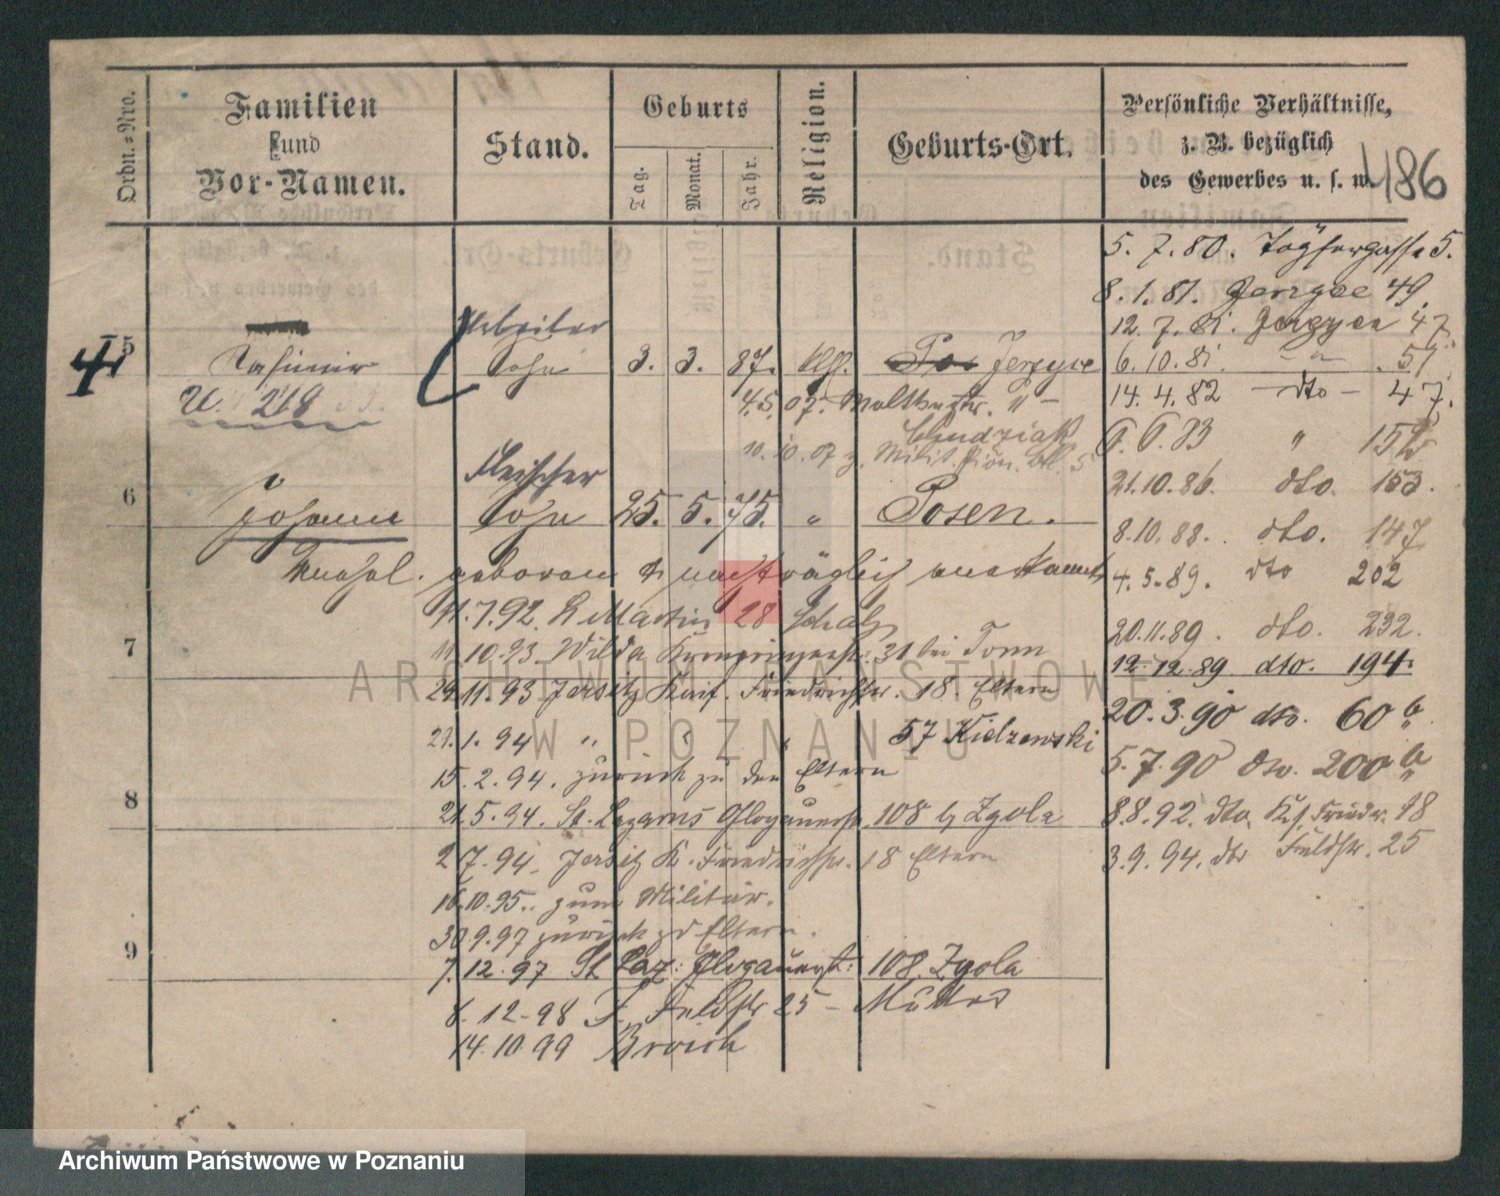 Ordn.-Nro.
Familien
und
Vor-Namen.
Stand.
Geburts
Tag.
Monat.
Jahr.
Religion.
Geburts-Ort.
Persönliche Verhältnisse,
z. B. bezüglich
des Gewerbes u. s. w.
486
5. 7. 80. 5.
8. 1. 81. Jerzyce 49.
12. 7. 81. Jerzyce 47
6. 10. 81. — " — 51
14. 4. 82 — dto — 47.
6. 6. 83 " 152
21. 10. 86. dto. 153.
8. 10. 88. dto. 147
4. 5. 89. dto 202
20. 11. 89. dto. 232.
12. 12. 89 dto. 194.
20. 3. 90 dto. 60a
5. 7. 90 dto. 200a
8. 8. 92. dto. Ks. Friedr. 18
3. 9. 94. dto Feldstr. 25
5
4
Arbeiter
Casimir Sohn 3. 3. 87. kth. Pos Jerzyce
U. 218
4. 5. 07. Moltkestr. " —
Chudziak
10. 10. 07 z. Milit. Pion. Btl. 5
6
Fleischer
Johann Sohn 25. 5. 75. " Posen.
geboren & nachträglich anerkannt
11. 7. 92. St Martin 28 Scholz
7
11. 10. 93 Wilda Kronprinzenstr. 31 bei Tonn
29. 11. 93 Jersitz Kais. Friedrichstr. 18. Eltern
23. 1. 94 " " " 57 Kielzewski
15. 2. 94. zurück zu den Eltern
8
21. 5. 94. St. Lazarus Glogauerstr. 108 b/ Zgola
2 7. 94. Jersitz K. Friedrichstr. 18 Eltern
16. 10. 95. zum Militär.
30. 9. 97 zurück zu Eltern.
9
7. 12. 97 St Laz. Glogauerstr. 108 Zgola
8. 12. 98 J. Feldstr 25 – Mutter
14. 10. 99 Broich
ARCHIWUM PAŃSTWOWE
W POZNANIU
Archiwum Państwowe w Poznaniu